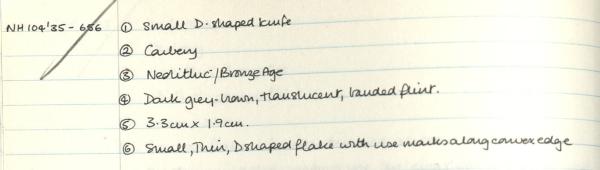 NH104'35-686 ① Small D-shaped knife
② Carbery
③ Neolithic/Bronze Age
④ Dark grey-brown, translucent, banded flint.
⑤ 3.3cm x 1.9cm.
⑥ Small, Thin, D shaped flake with use marks along convex edge